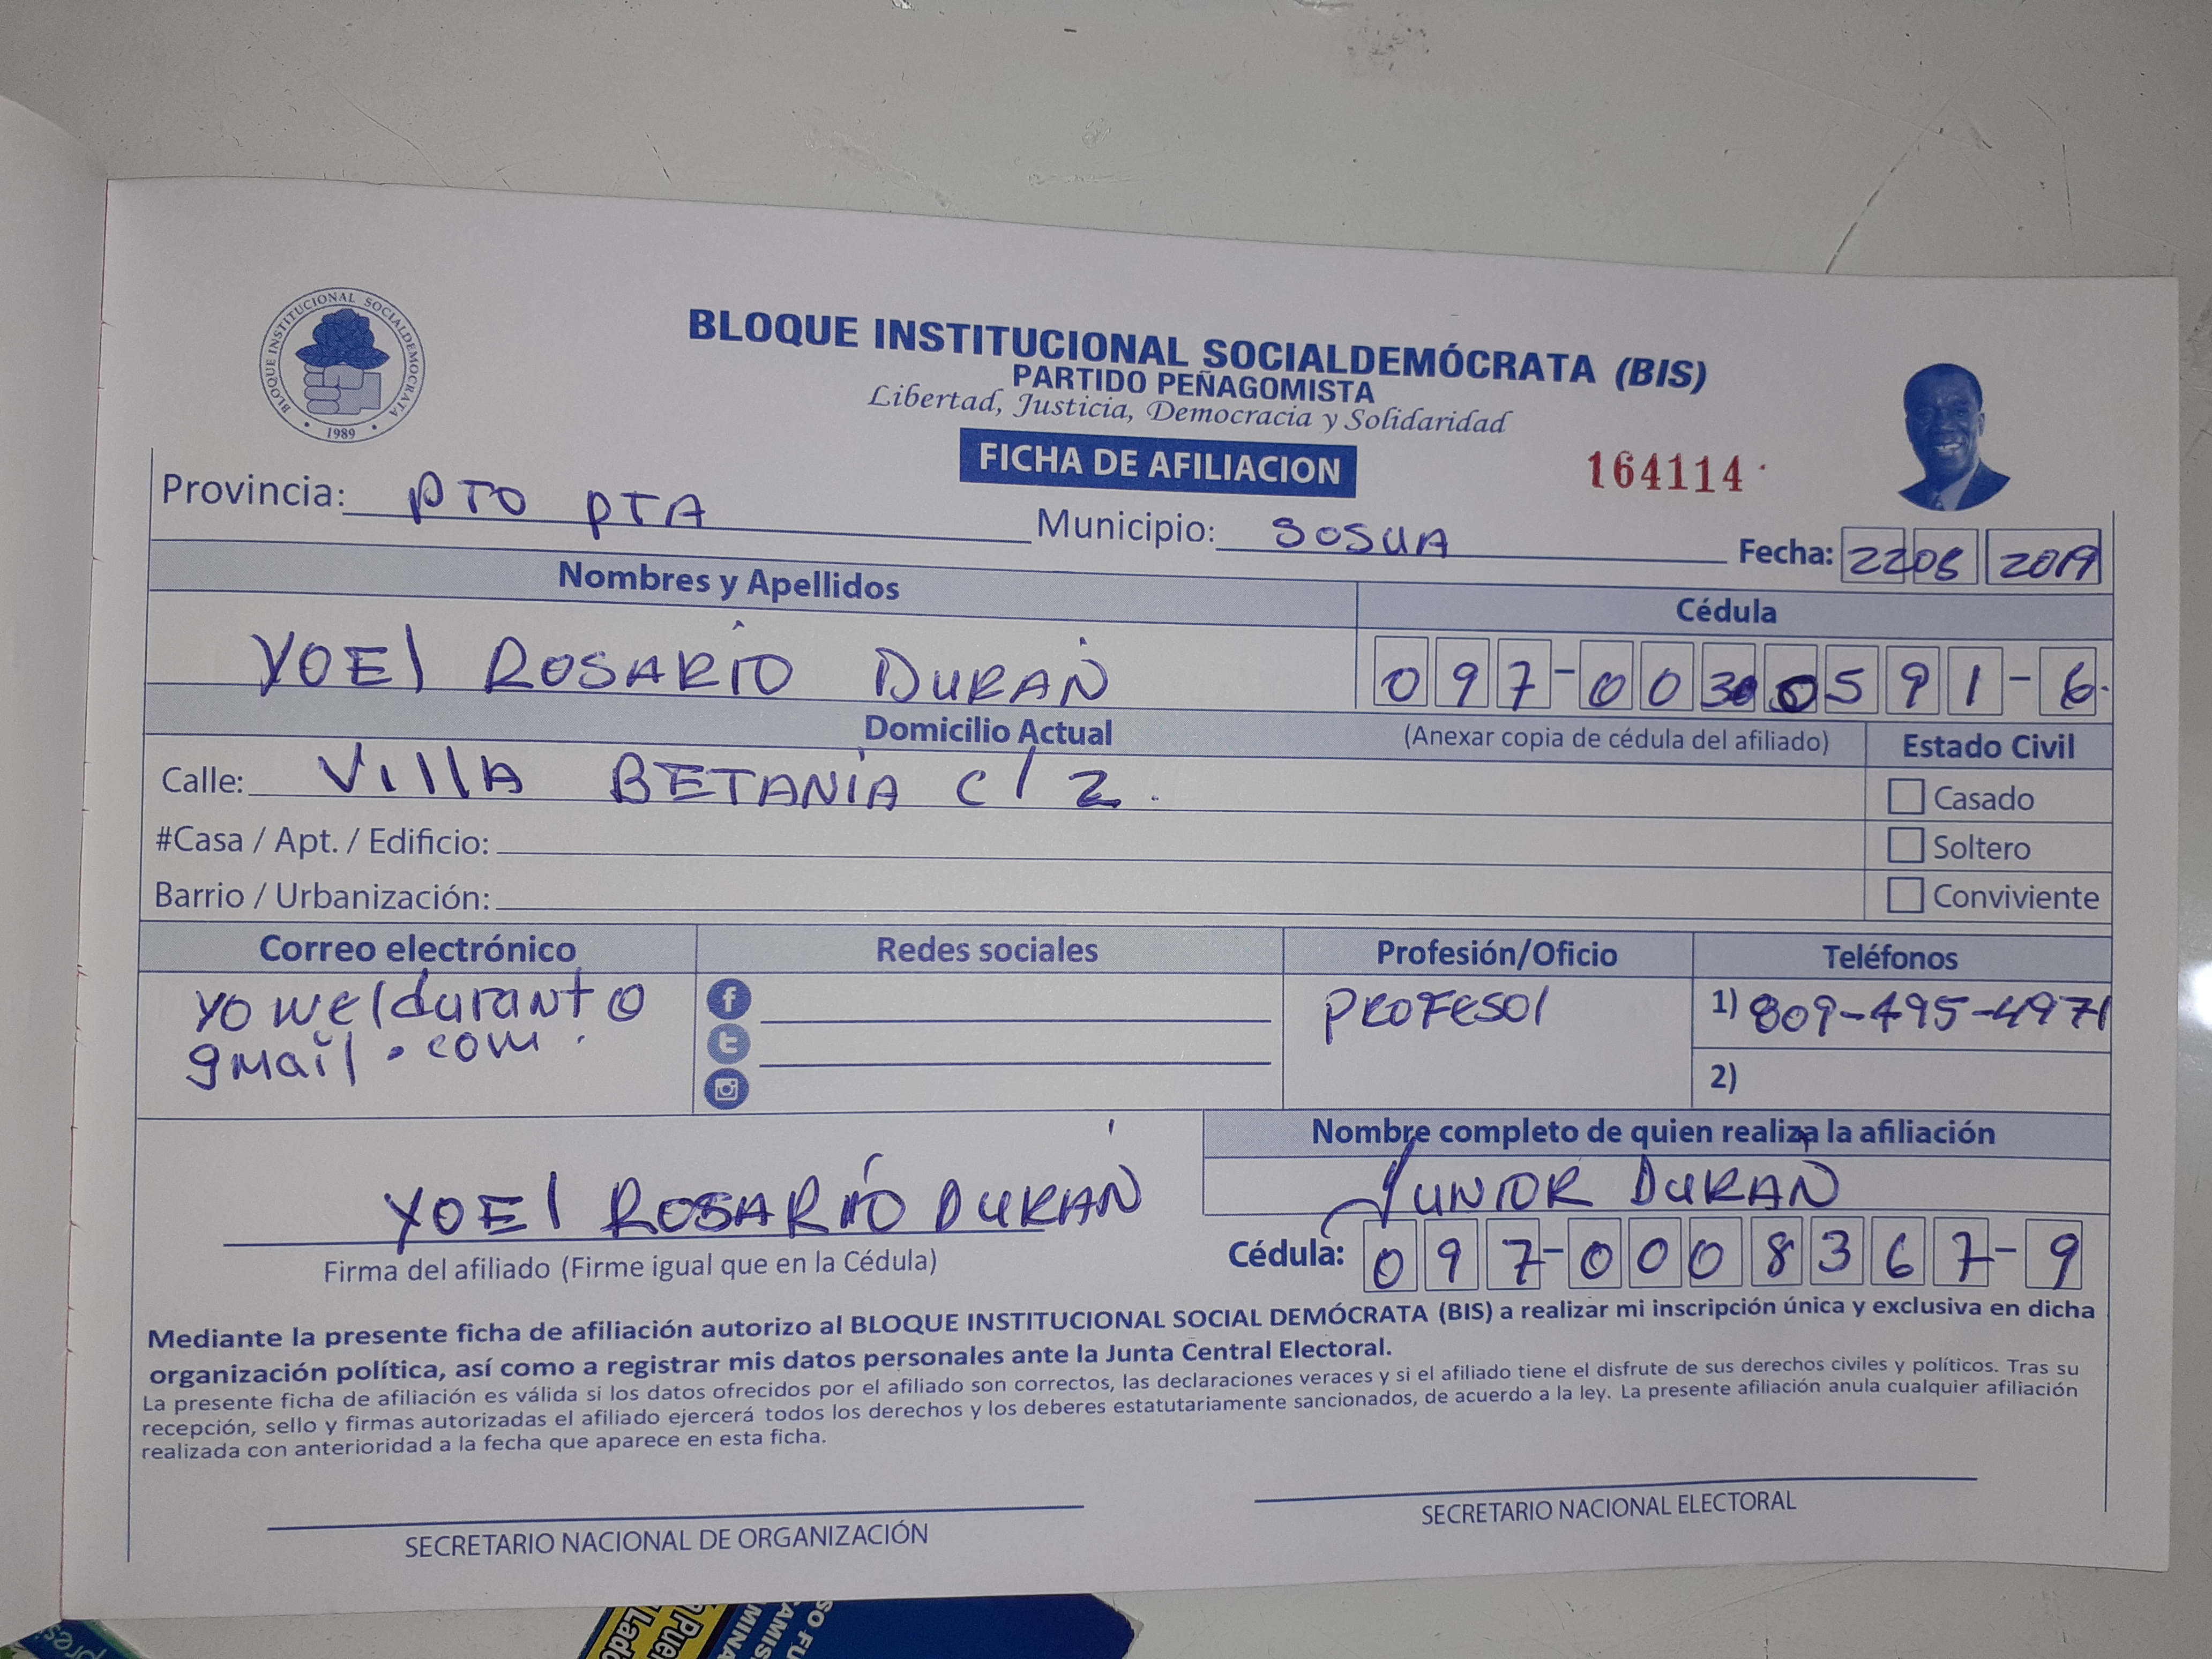 BLOQUE INSTITUCIONAL SOCIALDEMOCRATA
1989
BLOQUE INSTITUCIONAL SOCIALDEMÓCRATA (BIS)
PARTIDO PEÑAGOMISTA
Libertad, Justicia, Democracia y Solidaridad
FICHA DE AFILIACION
164114
Provincia: PTO PTA Municipio: SOSUA Fecha: 22 2019
Nombres y Apellidos Cédula
YOEl ROSARIO DURAN 097-00 591-6
Domicilio Actual (Anexar copia de cédula del afiliado) Estado Civil
Calle: VillA BETANIA c/ 2. Casado
#Casa / Apt. / Edificio: Soltero
Barrio / Urbanización: Conviviente
Correo electrónico Redes sociales Profesión/Oficio Teléfonos
PROFESOR 1) 809-495-4971
gmail.com.
2)
Nombre completo de quien realiza la afiliación
YOEl ROSARIO DURAN JUNIOR DURAN
Firma del afiliado (Firme igual que en la Cédula) Cédula: 097-0008367-9
Mediante la presente ficha de afiliación autorizo al BLOQUE INSTITUCIONAL SOCIAL DEMÓCRATA (BIS) a realizar mi inscripción única y exclusiva en dicha
organización política, así como a registrar mis datos personales ante la Junta Central Electoral.
La presente ficha de afiliación es válida si los datos ofrecidos por el afiliado son correctos, las declaraciones veraces y si el afiliado tiene el disfrute de sus derechos civiles y políticos. Tras su
recepción, sello y firmas autorizadas el afiliado ejercerá todos los derechos y los deberes estatutariamente sancionados, de acuerdo a la ley. La presente afiliación anula cualquier afiliación
realizada con anterioridad a la fecha que aparece en esta ficha.
SECRETARIO NACIONAL DE ORGANIZACIÓN SECRETARIO NACIONAL ELECTORAL